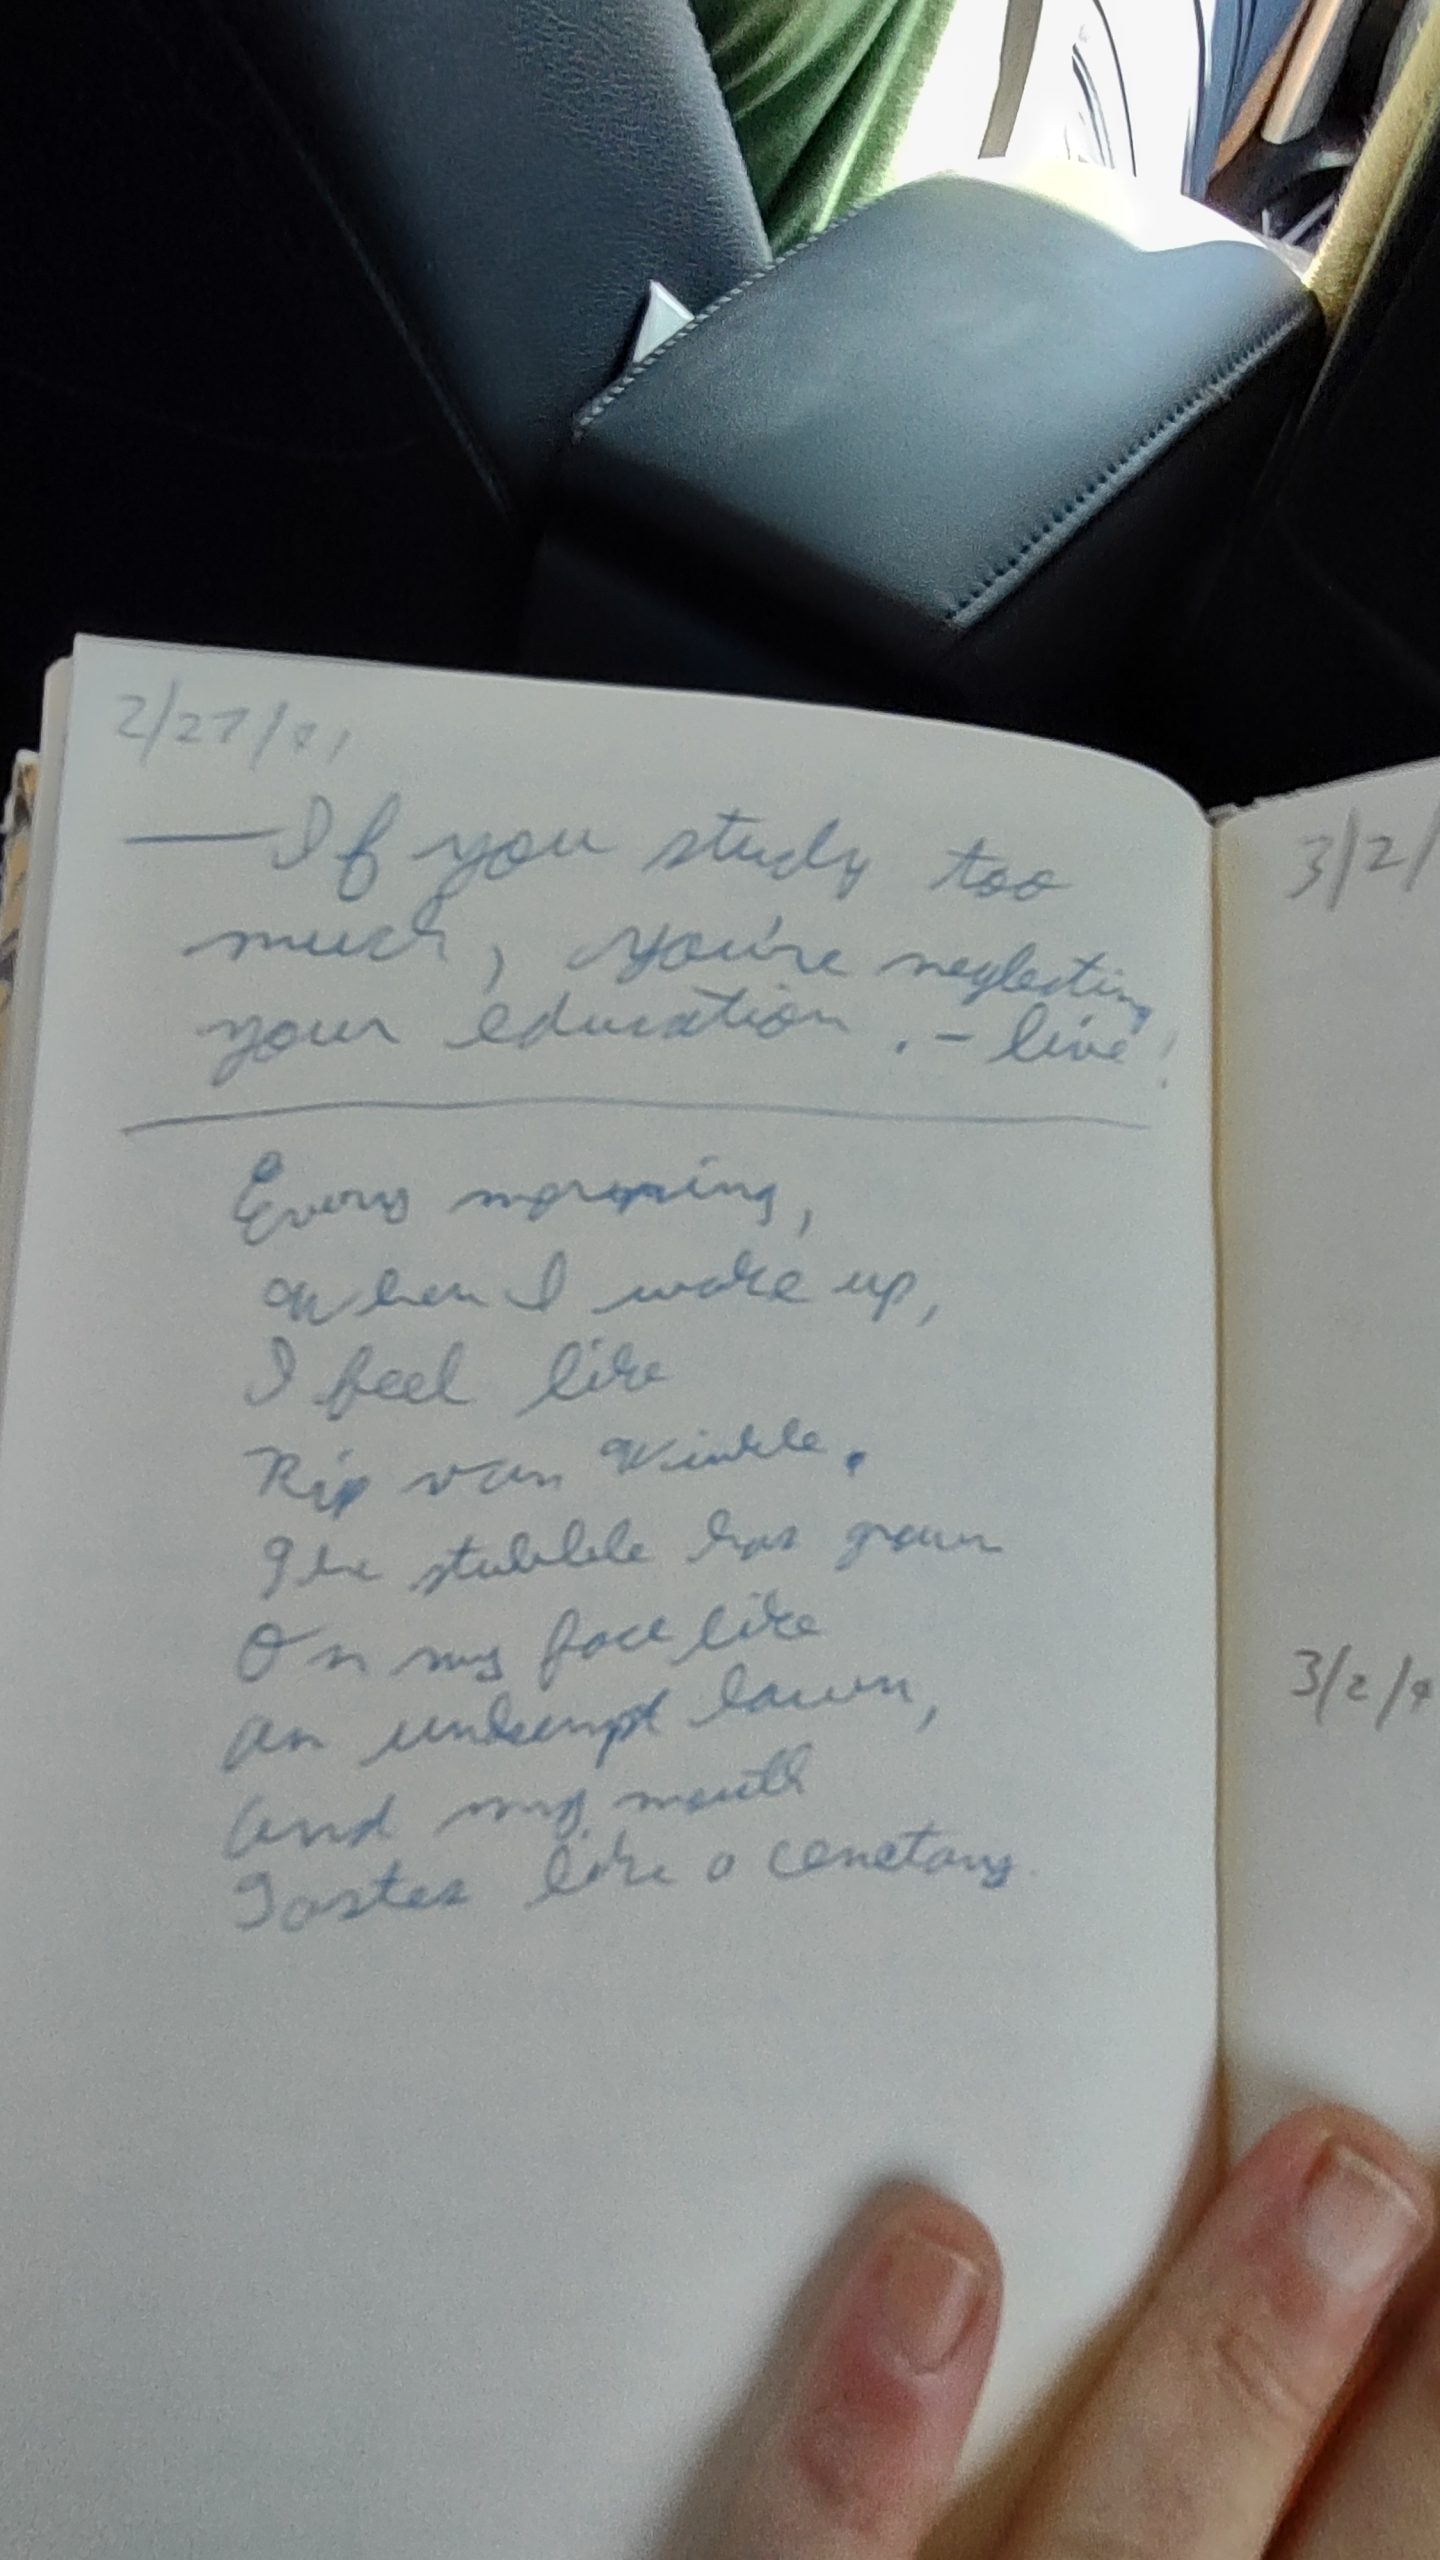 2/27/91
—If you study too
much, you're neglecting
your education. - live!
Every morning,
When I wake up,
I feel like
Rip van Winkle.
The stubble has grown
On my face like
an unkempt lawn,
And my mouth
Tastes like a cemetary.
3/2/
3/2/9